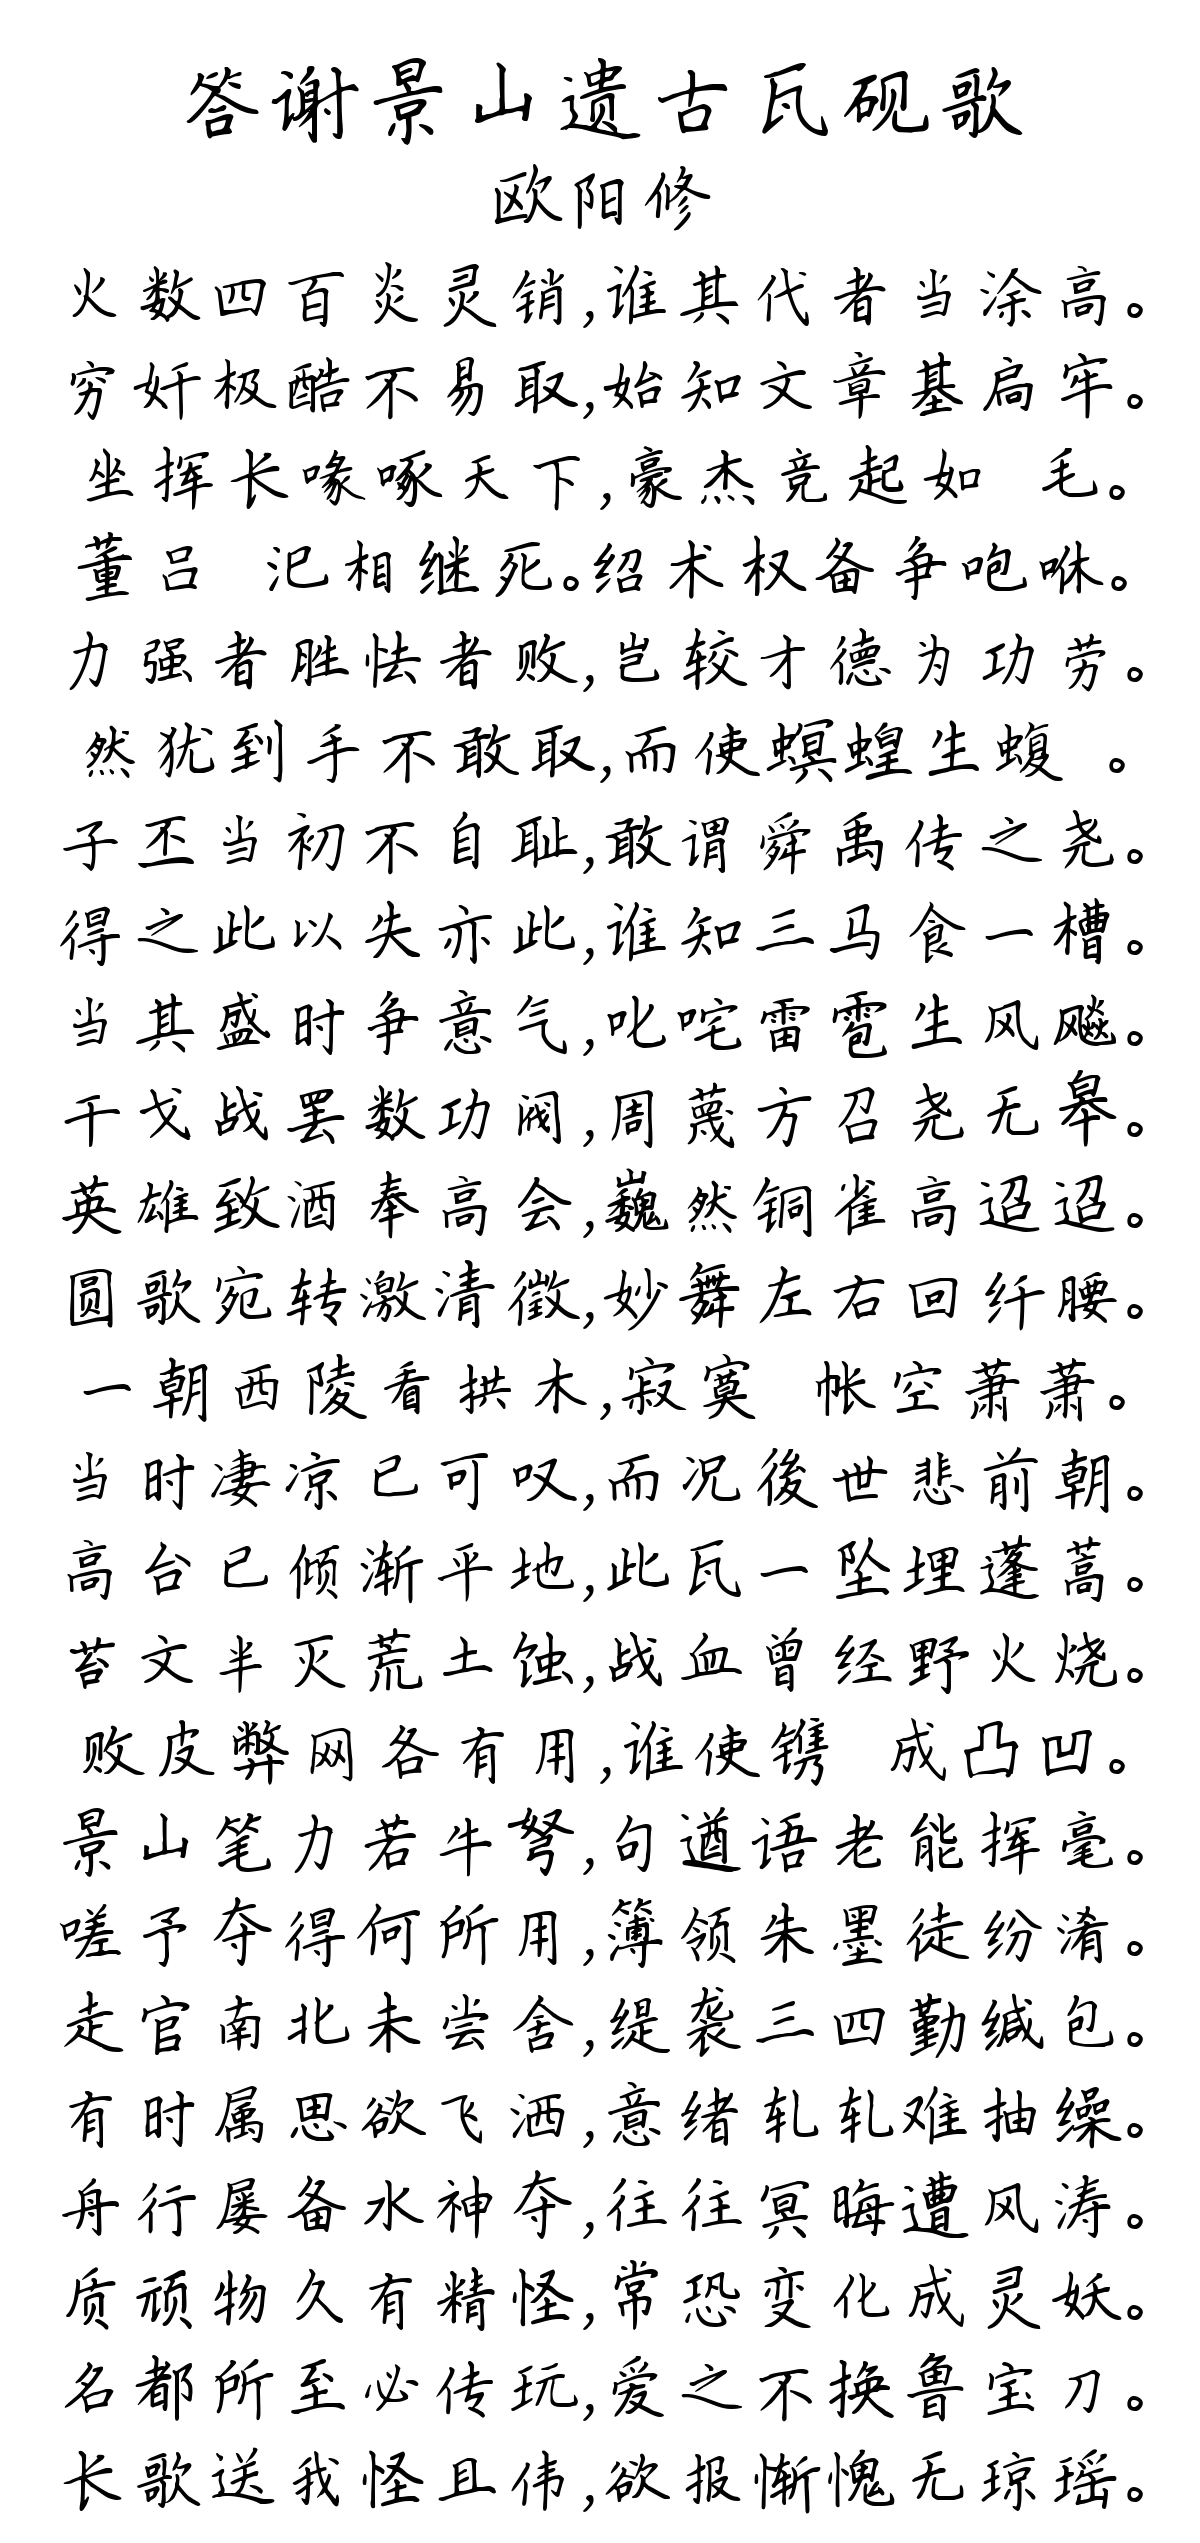 答谢景山遗古瓦砚歌
欧阳修
火数四百炎灵销,谁其代者当涂高。
穷奸极酷不易取,始知文章基扃牢。
坐挥长喙啄天下,豪杰竞起如 毛。
董吕 汜相继死。绍术权备争咆咻。
力强者胜怯者败,岂较才德为功劳。
然犹到手不敢取,而使螟蝗生蝮 。
子丕当初不自耻,敢谓舜禹传之尧。
得之此以失亦此,谁知三马食一槽。
当其盛时争意气,叱咤雷雹生风飚。
干戈战罢数功阀,周蔑方召尧无皋。
英雄致酒奉高会,巍然铜雀高迢迢。
圆歌宛转激清徵,妙舞左右回纤腰。
一朝西陵看拱木,寂寞 帐空萧萧。
当时凄凉已可叹,而况後世悲前朝。
高台已倾渐平地,此瓦一坠埋蓬蒿。
苔文半灭荒土蚀,战血曾经野火烧。
败皮弊网各有用,谁使镌 成凸凹。
景山笔力若牛弩,句遒语老能挥毫。
嗟予夺得何所用,簿领朱墨徒纷淆。
走官南北未尝舍,缇袭三四勤缄包。
有时属思欲飞洒,意绪轧轧难抽缲。
舟行屡备水神夺,往往冥晦遭风涛。
质顽物久有精怪,常恐变化成灵妖。
名都所至必传玩,爱之不换鲁宝刀。
长歌送我怪且伟,欲报惭愧无琼瑶。